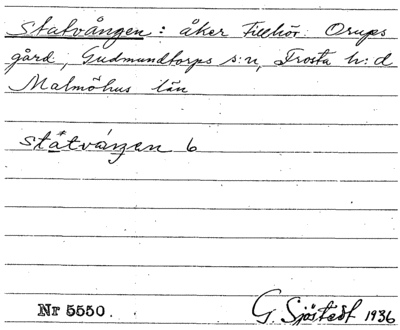 Statvången: åker Tillhör: Orups
gård, Gudmundtorps s:n, Frosta h:d
Malmöhus län
státváŋen 6
Nr 5550.
G. Sjöstedt 1936